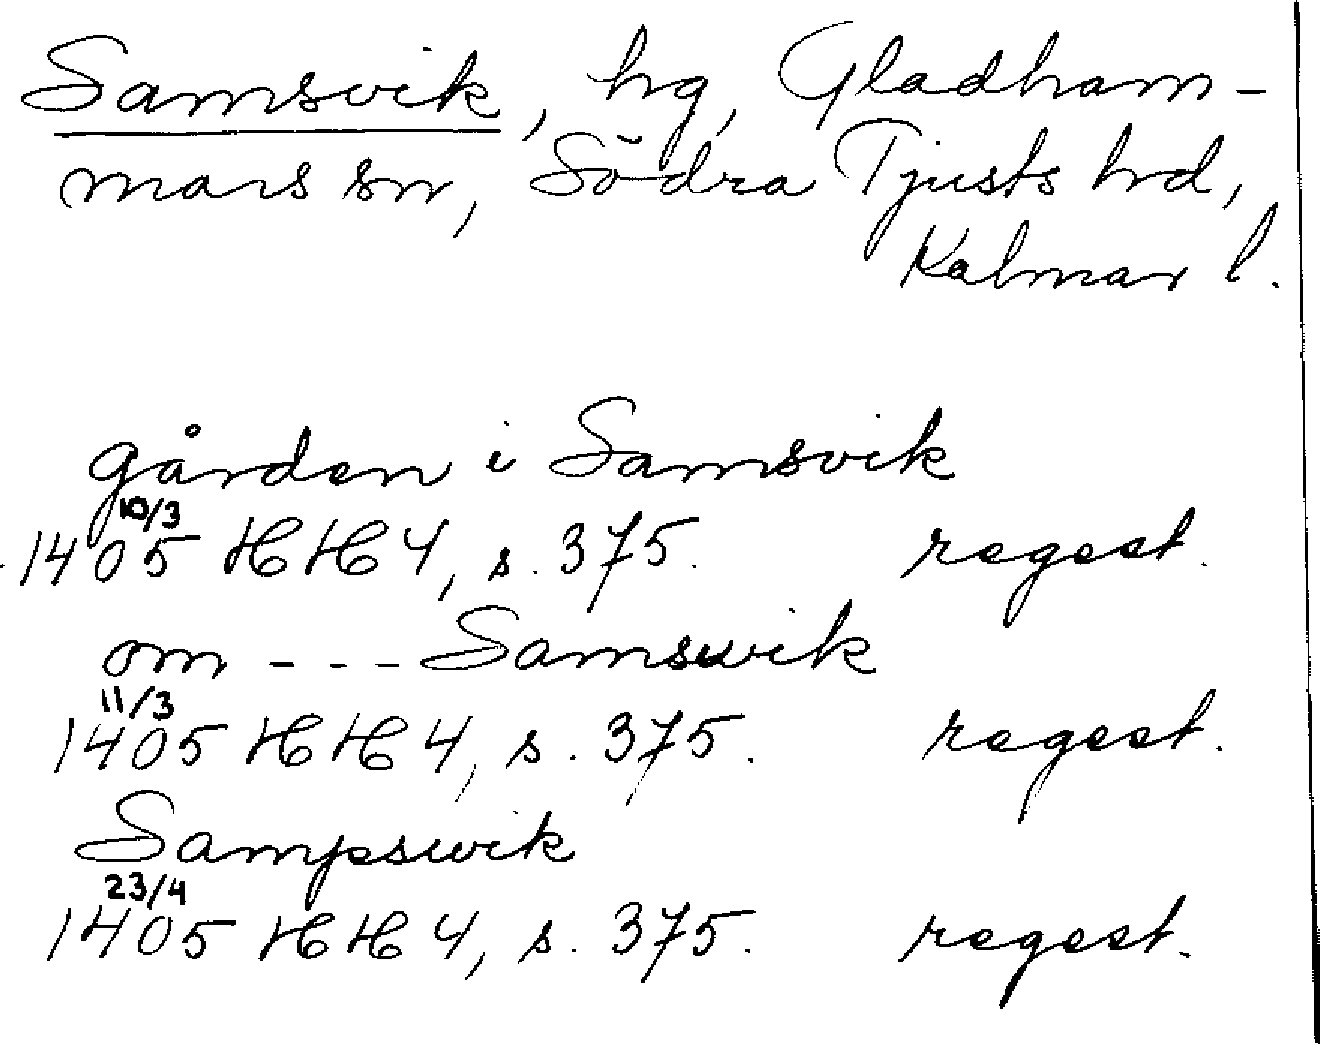 Samsvik, hg, Gladham-
mars sn, Södra Tjusts hd,
Kalmar l.
gården i Samsvik
10/3
1405 HH 4, s. 375. regest.
om --- Samswik
11/3
1405 HH 4, s. 375. regest.
Sampswik
23/4
1405 HH 4, s. 375. regest.